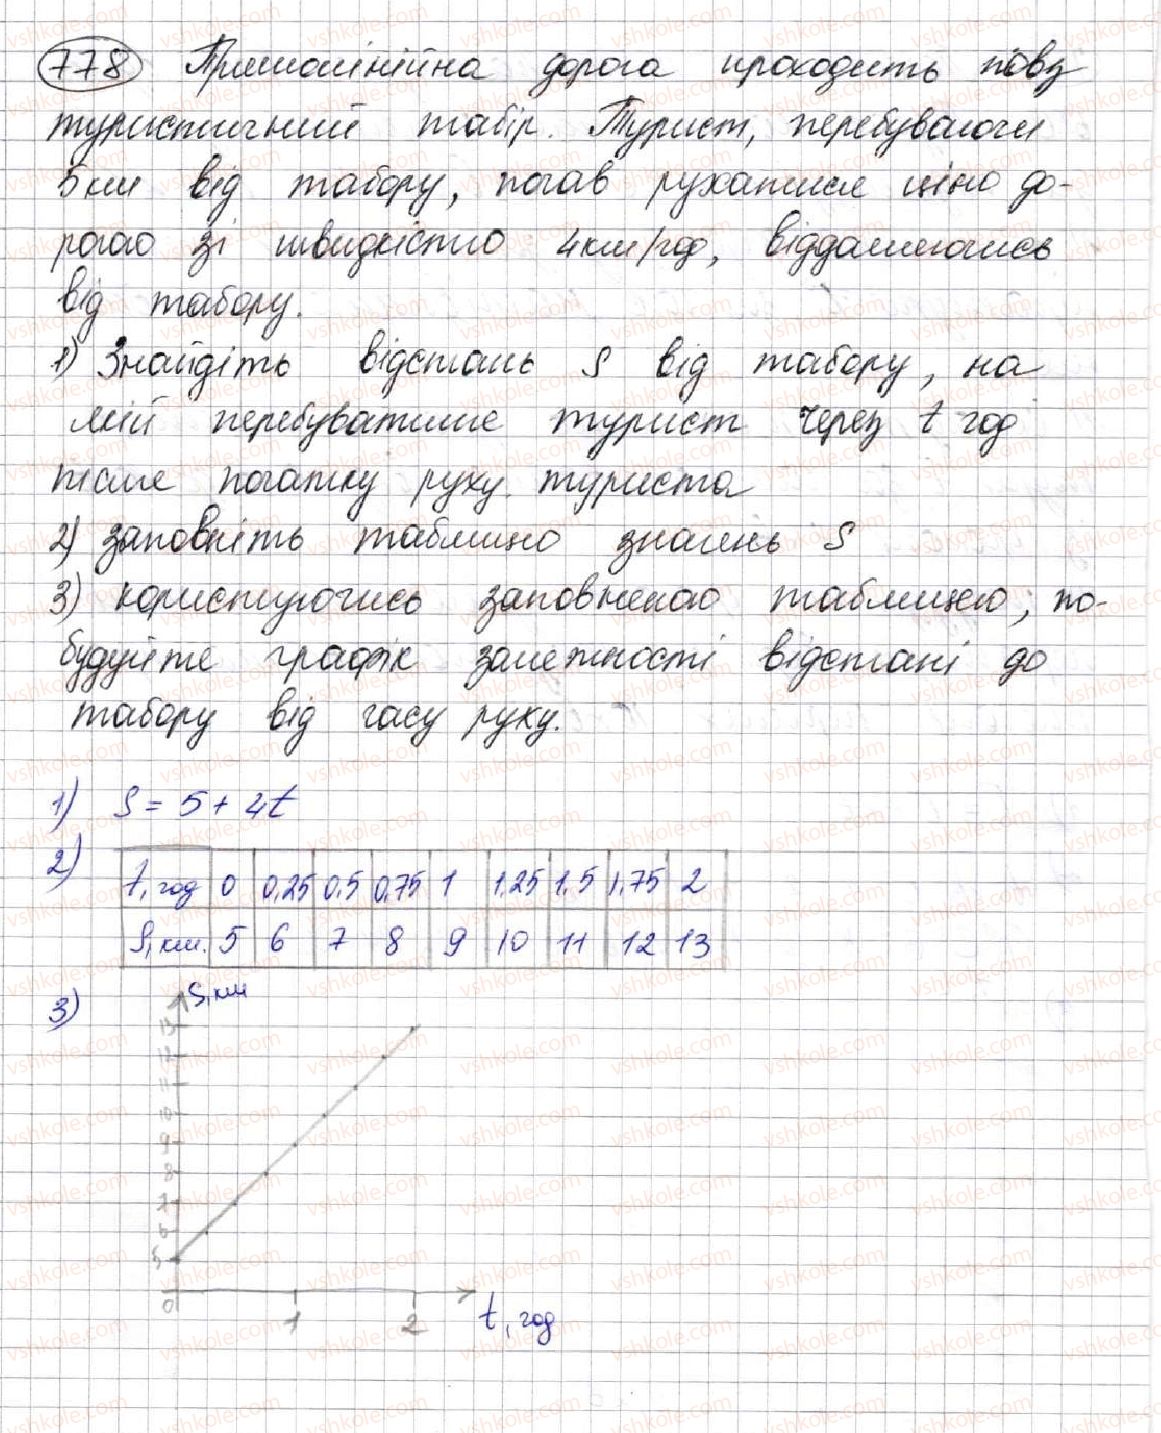 778 Прямолінійна дорога проходить повз
туристичний табір. Турист, перебуваючи
5км від табору, почав рухатися цією до-
рогою зі швидкістю 4км/год, віддаляючись
від табору.
1) Знайдіть відстань S від табору, на
якій перебуватиме турист через t год
після початку руху туриста
2) заповніть таблицю значень S
3) користуючись заповненою таблицею, по-
будуйте графік залежності відстані до
табору від часу руху.
1) S = 5 + 4t
2)
t, год 0 0,25 0,5 0,75 1 1,25 1,5 1,75 2
S, км. 5 6 7 8 9 10 11 12 13
3) S, км
13
12
11
10
9
8
7
6
5
0 1 2 t, год
vshkole.com